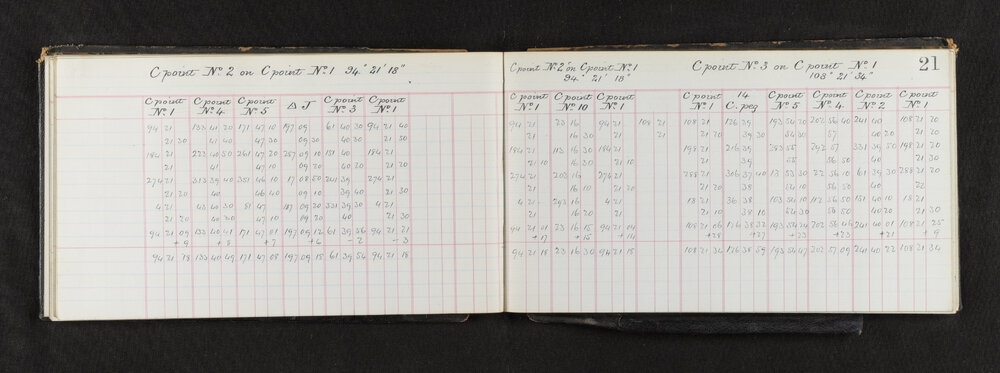 C point No 2 on C point No 1 94° 21' 18"
C point No 1 C point No 4 C point No 5 Δ J C point No 3 C point No 1
94 21 133 41 20 171 47 10 197 09 61 40 30 94 21 40
21 30 41 40 47 30 09 30 40 30 21 50
184 21 223 40 50 261 47 20 287 09 10 151 40 184 21
21 41 47 10 09 20 40 20 21 20
274 21 313 39 40 351 46 10 17 08 50 241 39 274 21
21 20 40 46 40 09 10 39 40 21 30
4 21 43 40 30 81 47 107 09 20 331 39 30 4 21
21 20 40 30 47 10 09 20 40 21 30
94 21 09 133 40 41 171 47 01 197 09 12 61 39 56 94 21 21
+9 +8 +7 +6 -2 -3
94 21 18 133 40 49 171 47 08 197 09 18 61 39 54 94 21 18
C point No 2 on C point No 1
94° 21' 18"
C point No 1 C point No 10 C point No 1
94 21 23 16 94 21 108 21
21 16 30 21 21
184 21 113 16 30 184 21
21 10 16 30 21 10
274 21 203 16 274 21
21 16 10 21 20
4 21 293 16 4 21
21 16 20 21
94 21 01 23 16 15 94 21 04
+17 +15 +14
94 21 18 23 16 30 94 21 18
C point No 3 on C point No 1
108° 21' 34"
21
C point No 1 14 C. peg C point No 5 C point No 4 C point No 2 C point No 1
108 21 126 39 193 54 20 202 56 40 241 40 108 21 20
21 20 39 30 54 30 57 40 20 21 20
198 21 216 39 283 55 292 57 331 39 50 198 21 20
21 39 55 56 50 40 21 30
288 21 306 37 40 13 53 30 22 56 10 61 39 30 288 21 20
21 20 38 54 10 56 50 40 22
18 21 36 38 103 54 10 112 56 50 151 40 10 18 21
21 10 38 10 54 30 56 50 40 20 21 30
108 21 06 126 38 32 193 54 24 202 56 46 241 40 01 108 21 25
+28 +27 +23 +23 +21 +9
108 21 34 126 38 59 193 54 47 202 57 09 241 40 22 108 21 34